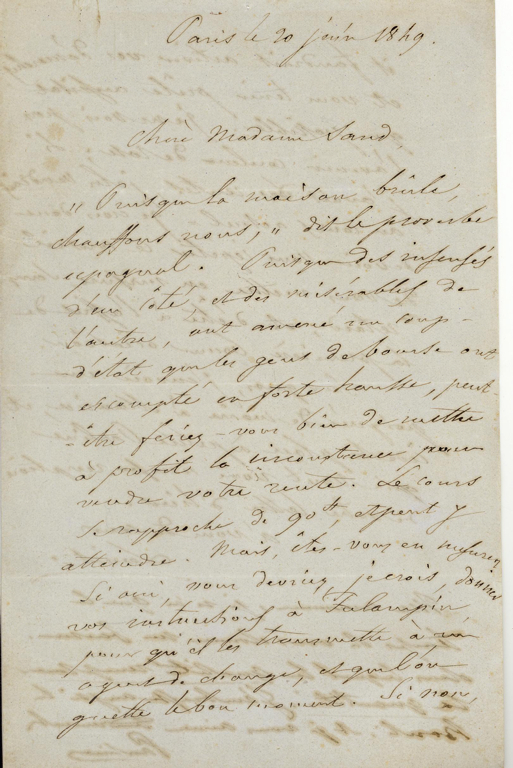 Paris le 20 juin 1849.
Chère Madame Sand,
"Puisque la maison brûle,
chauffons nous," dit le proverbe
espagnol. Puisque des insensés
d'un côté, et des misérables de
l'autre, ont amené un coup-
d'état que les gens de bourse ont
escompté en forte hausse, peut-
être feriez-vous bien de mettre
à profit la circonstance pour
vendre votre rente. Le cours
se rapproche de 90f, et peut y
atteindre. Mais, êtes-vous en mesure,
Si oui, vous devriez, je crois, donner
vos instructions à Falampin
pour qu'il les transmette à un
agent de change, et que l'on
guette le bon moment. Si non,